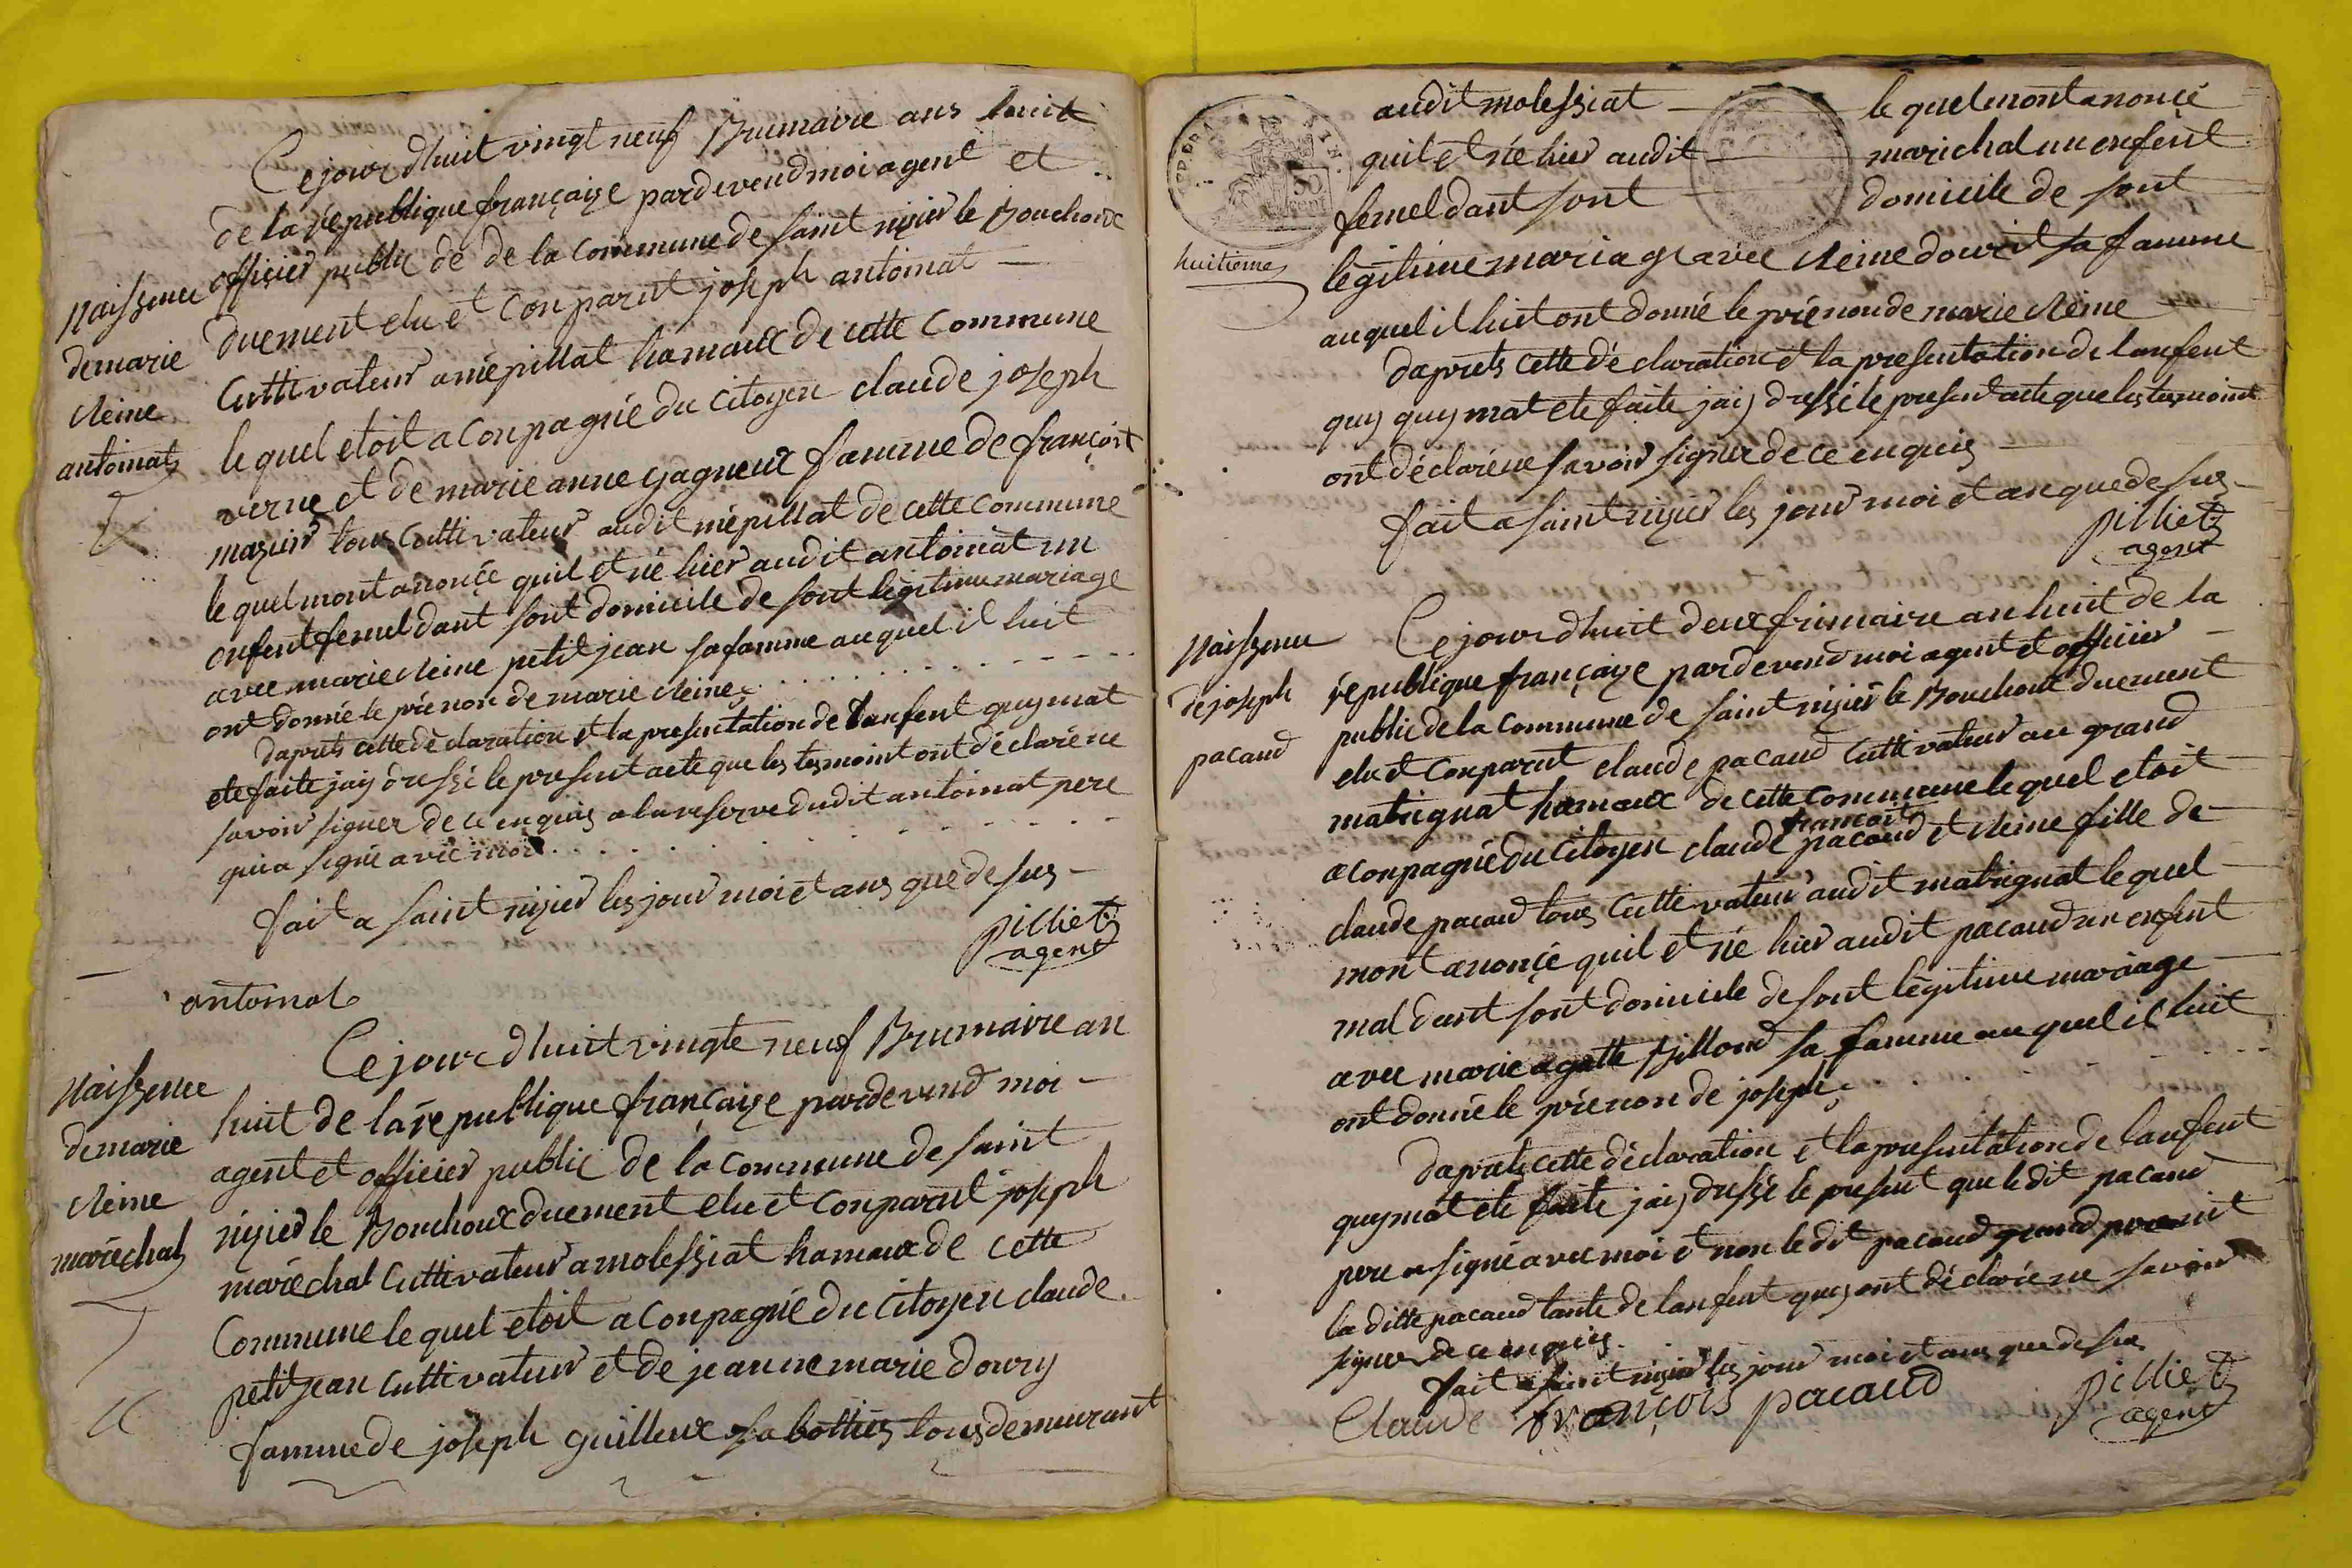 Naissence
de marie
Reine
antoinat
Ce jourdhuit vingt neuf Brumaire ans huit
de la république françaize pardevend moi agent et
officier public de de la commune de saint nizier le Bouchoux
duement elu et conparut joseph antoinat
Cuttivateur a mépillat hamaux de cette Commune
le quel etoit aconpagné du citoyen claude joseph
verne et de marie anne gagneux famme de françoit
mazuir tous cuttivateur audit mépillat de cette commune
le quel mont anonçé quil et né hier audit antoinat un
enfent femel dant sont domicile de sont légitime mariage
avec marie Reine petit jean sa famme au quel il luit
ont donné le prénon de marie Reine
daprets cette déclaration et la presentation de lenfent quy mat
ete faite jaiy dressé le present acte que les tesmoint ont déclaré ne
savoir signer de ce enquis a la reserve dudit antoinat pere
qui a signé avec moi
fait a saint nizier les jour moi et ans que desus
pilliet
agent
antoinat
Naissence
de marie
Reine
maréchal
Ce jourdhuit vingte neuf Brumaire an
huit de la république françaize pardevend moi
agent et officier public de la commune de saint
nizier le Bouchoux duement elu et conparut joseph
maréchal cuttivateur a molessiat hamaux de cette
Commune le quel etoit aconpagné du citoyen claude
petitjean cuttivateur et de jeanne marie doury
famme de joseph guilleux sabottiez tous demeurant
huitieme
50
cent
audit molessiat le quel mont anonçé
quil et né hier audit marichal un enfent
femel dant sont domicile de sont
légitime mariage avec Reine dourit sa famme
auquel il luit ont donné le prénon de marie Reine
daprets cette déclaration et la presentation de lanfent
quy quy mat ete faite jaiy dressé le present acte que les tesmoint
ont déclaré ne savoir signer de ce enquis
fait a saint nizier les jour moi et an que desus
pilliet
agent
Naissence
de joseph
pacaud
Ce jourdhuit deux frimaire an huit de la
république françaize pardevend moi agent et officier
public de la commune de saint nizier le Bouchoux duement
elu et conparut claude pacaud cuttivateur au grand
matrignat hamaux de cette commune le quel etoit
françoit
aconpagné du citoyen claude pacaud et Reine fille de
claude pacaud tous cuttivateur audit matrignat le quel
mont anonçé quil et né hier audit pacaud un enfent
mal dant sont domicile de sont légitime mariage
avec marie agatte Billond sa famme au quel il luit
ont donné le prénon de joseph
daprets cette déclaration et la presentation de lanfent
quy mat ete faite jaiy dressé le present que le dit pacaud
pere a signé avec moi et non le dit pacaud grand
la ditte pacaud tante de lanfent quy ont déclaré ne savoir
signer de ce enquis
fait a saint nizier les jour moi et ans que desus
Claude françois pacaud
pilliet
agent